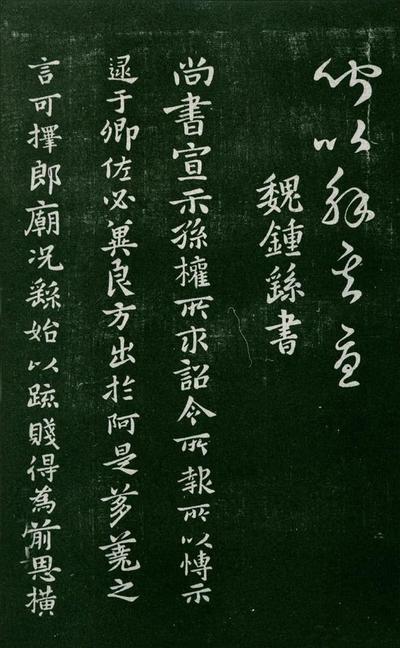 以
魏鍾繇書
尚書宣示孫權所求詔令所報所以博示
逮于卿佐必冀良方出於阿是芻蕘之
言可擇郎廟況繇始以疏賤得為前恩橫